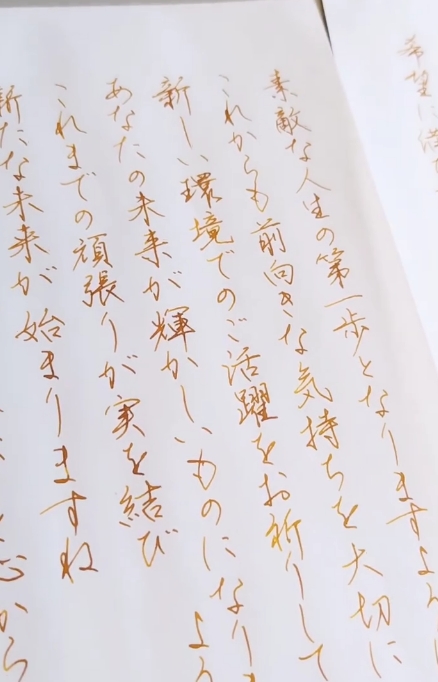 希望に
素敵な人生の第一歩となりますよ
これからも前向きな気持ちを大切に
新しい環境でのご活躍をお祈りして
あなたの未来が輝かしいものになりま
これまでの頑張りが実を結び
新たな未来が始まりますね
心から